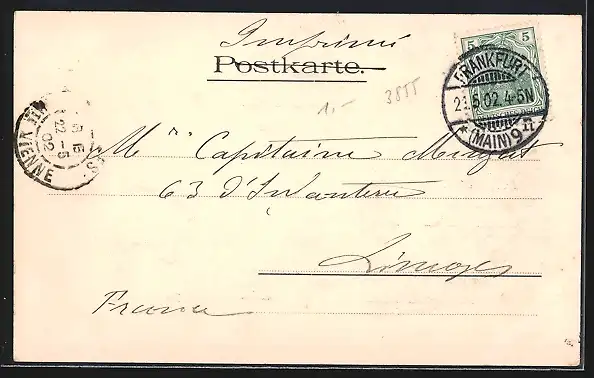 Imprimé
Postkarte.
5 5
FRANKFURT
21.5.02.4-5N
*(MAIN)9
1.- 3855
Capitaine
63 d'Infanterie
Limoges
France
22-5
02
VIENNE